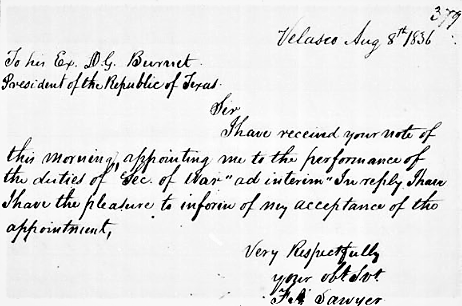 379
Velasco Aug 8th 1836
To his Ex. D.G. Burnet
President of the Republic of Texas.
Sir
I have received your note of
this morning, appointing me to the performance of
the duties of "Sec. of War" ad interim" In reply I have
I have the pleasure to inform of my acceptance of the
appointment,
Very Respectfully
your obt Svt
F.A Sawyer